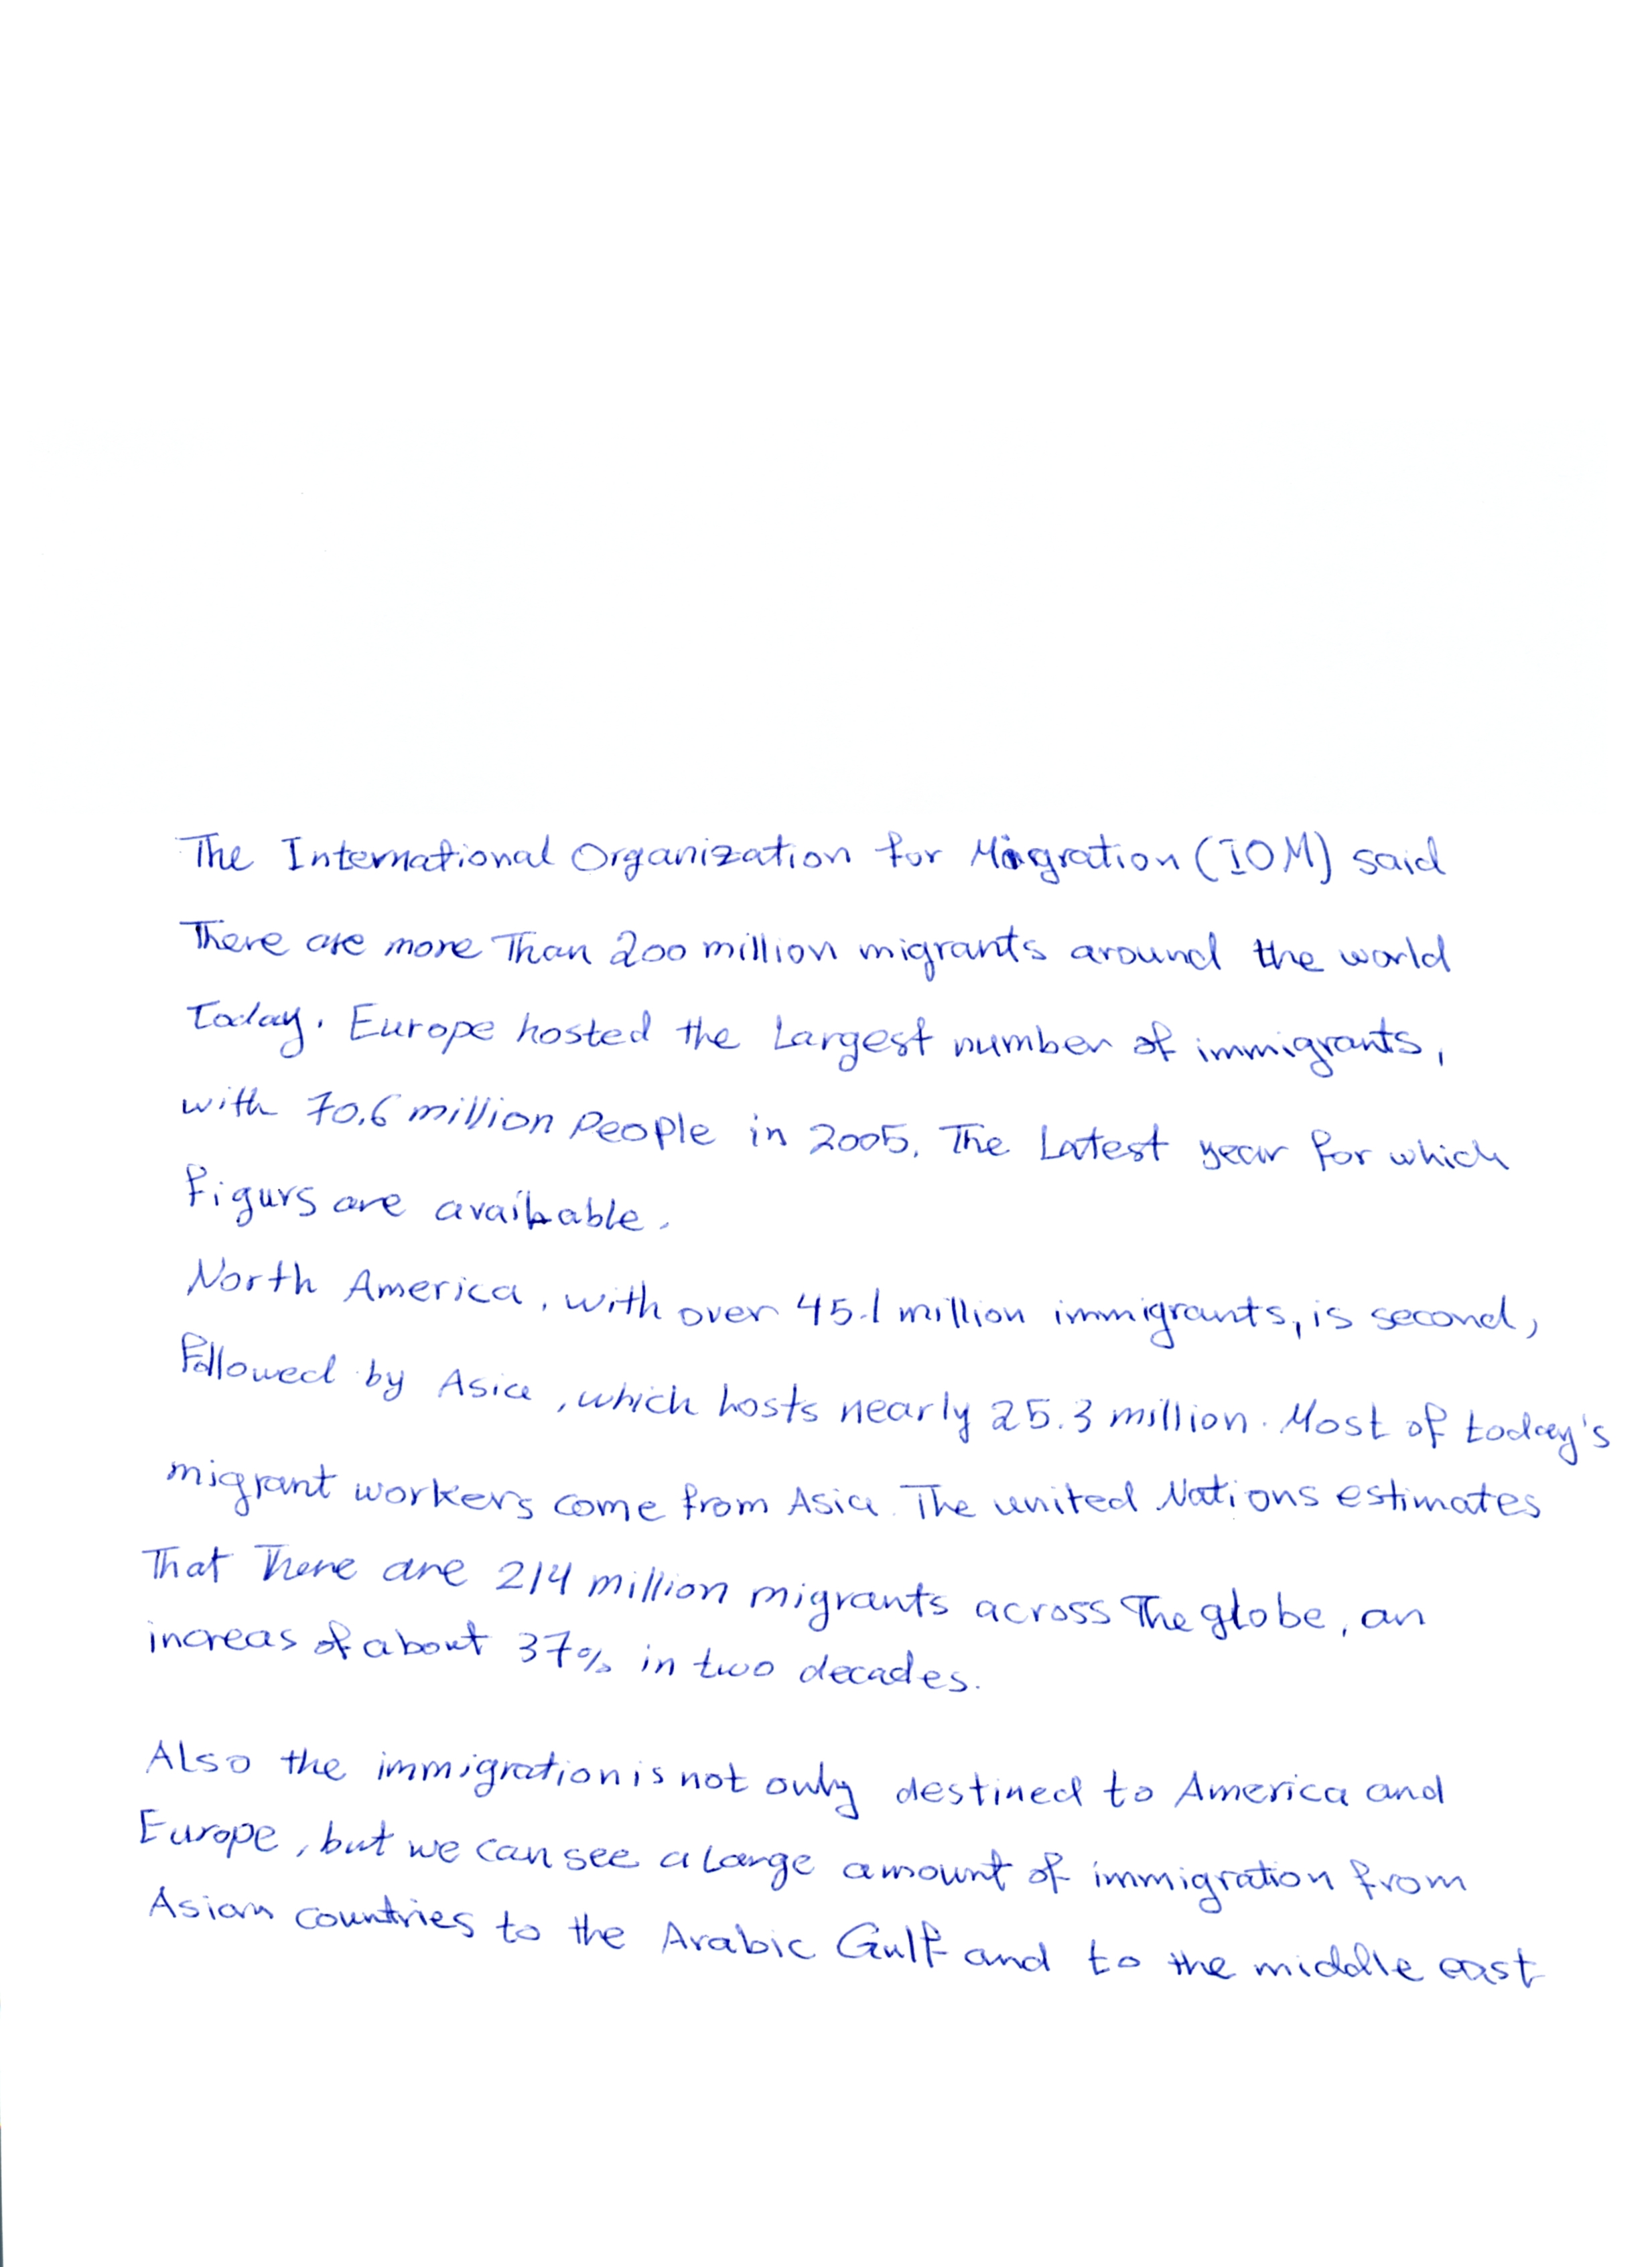 The International Organization for Migration (IOM) said
There are more Than 200 million migrants around the world
Today. Europe hosted the Largest number of immigrants,
with 70.6 million People in 2005. The Latest year for which
figurs are available.
North America, with over 45.1 million immigrants, is second,
followed by Asia, which hosts nearly 25.3 million. Most of today's
migrant workers come from Asia. The united Nations estimates
That There are 214 million migrants across The globe, an
increas of about 37% in two decades.
Also the immigration is not only destined to America and
Europe, but we can see a Large amount of immigration from
Asian countries to the Arabic Gulf and to the middle east